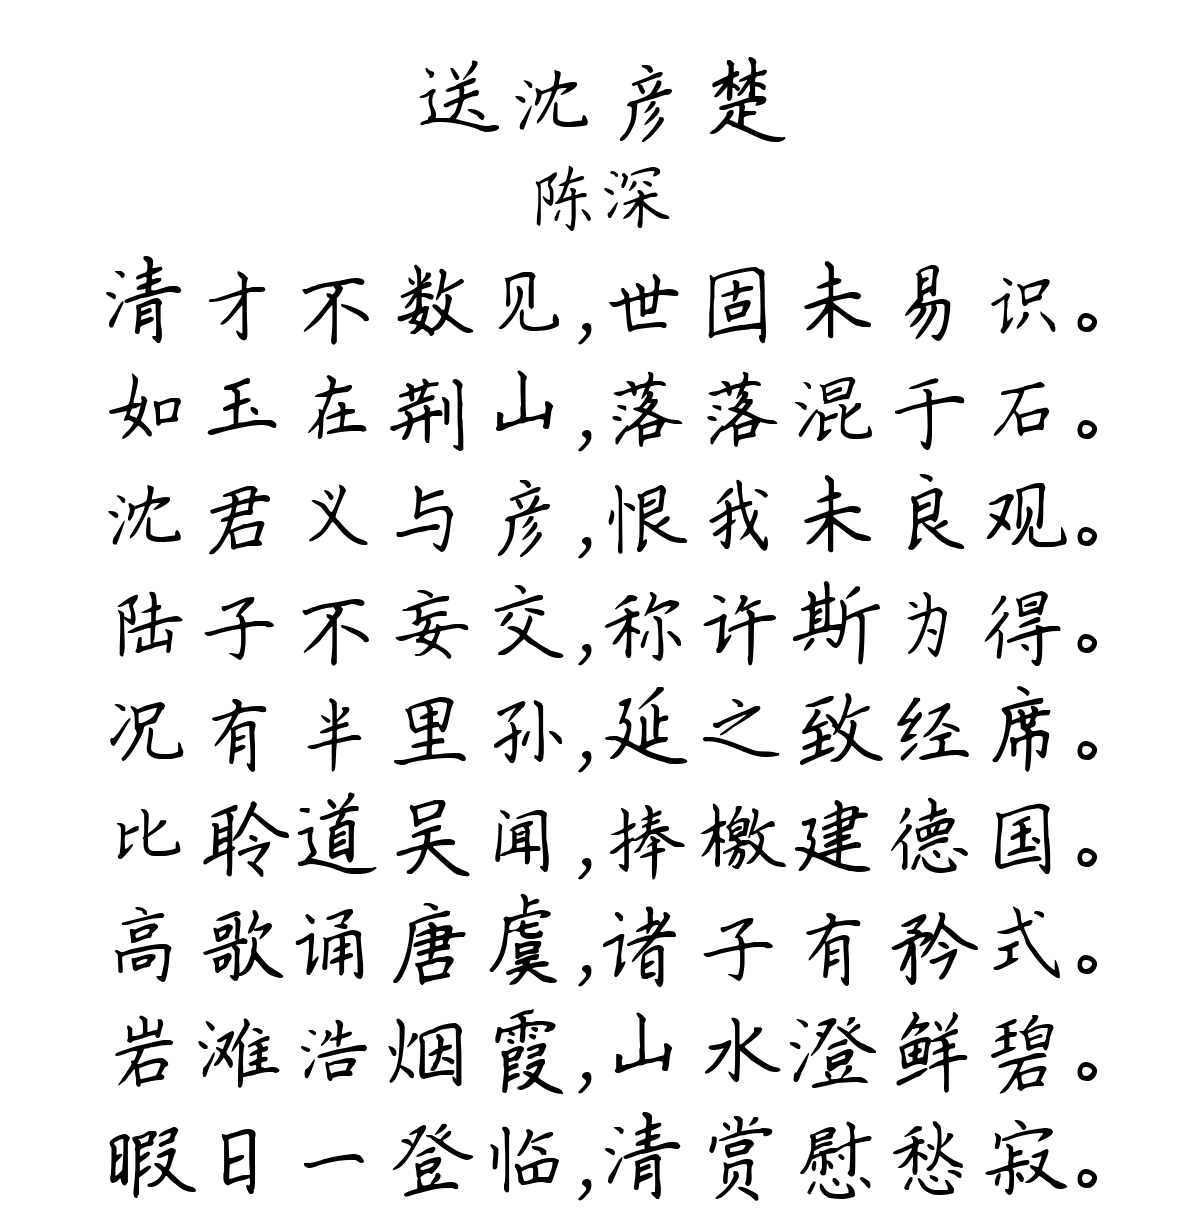 送沈彦楚
陈深
清才不数见,世固未易识。
如玉在荆山,落落混于石。
沈君义与彦,恨我未良观。
陆子不妄交,称许斯为得。
况有半里孙,延之致经席。
比聆道吴闻,捧檄建德国。
高歌诵唐虞,诸子有矜式。
岩滩浩烟霞,山水澄鲜碧。
暇日一登临,清赏慰愁寂。